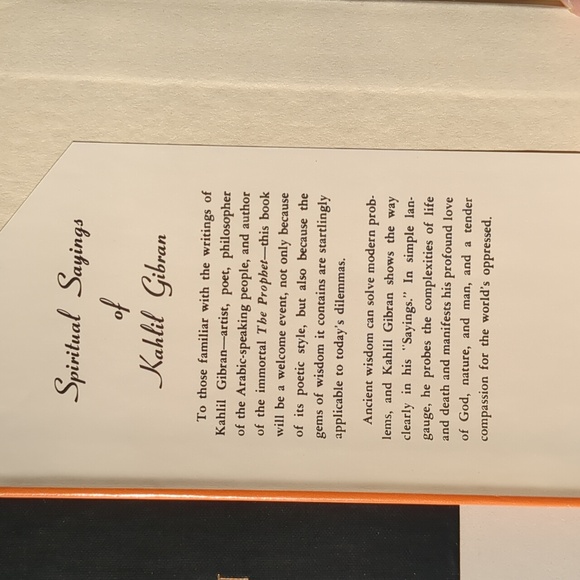 Spiritual Sayings
of
Kahlil Gibran
To those familiar with the writings of
Kahlil Gibran—artist, poet, philosopher
of the Arabic-speaking people, and author
of the immortal The Prophet—this book
will be a welcome event, not only because
of its poetic style, but also because the
gems of wisdom it contains are startlingly
applicable to today's dilemmas.
Ancient wisdom can solve modern prob-
lems, and Kahlil Gibran shows the way
clearly in his "Sayings." In simple lan-
guage, he probes the complexities of life
and death and manifests his profound love
of God, nature, and man, and a tender
compassion for the world's oppressed.